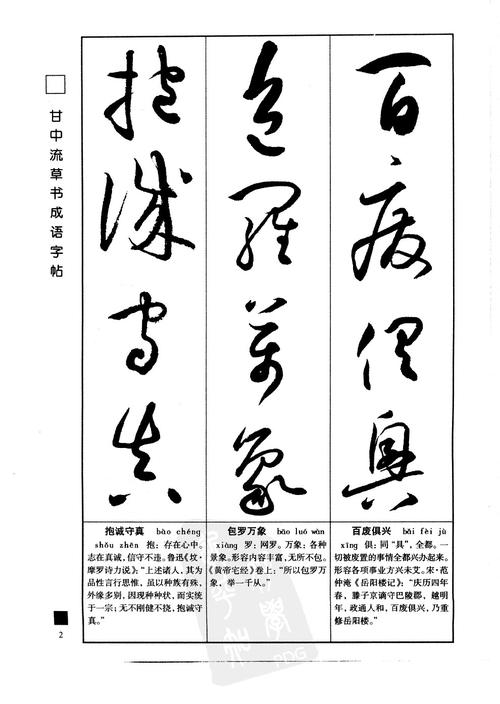 甘中流草书成语字帖
百废俱兴
包罗万象
抱诚守真
百废俱兴 bǎi fèi jù
xīng 俱：同“具”，全都。一
切被废置的事情都兴办起来。
形容各项事业方兴未艾。宋·范
仲淹《岳阳楼记》：“庆历四年
春，滕子京谪守巴陵郡，越明
年，政通人和，百废俱兴，乃重
修岳阳楼。”
包罗万象 bāo luó wàn
xiàng 罗：网罗。万象：各种
景象。形容内容丰富，无所不包。
《黄帝宅经》卷上：“所以包罗万
象，举一千从。”
抱诚守真 bào chéng
shǒu zhēn 抱：存在心中。
志在真诚，信守不违。鲁迅《坟·
摩罗诗力说》：“上述诸人，其为
品性言行思惟，虽以种族有殊，
外缘多别，因现种种状，而实统
于一宗；无不刚健不挠，抱诚守
真。”
2
PDG